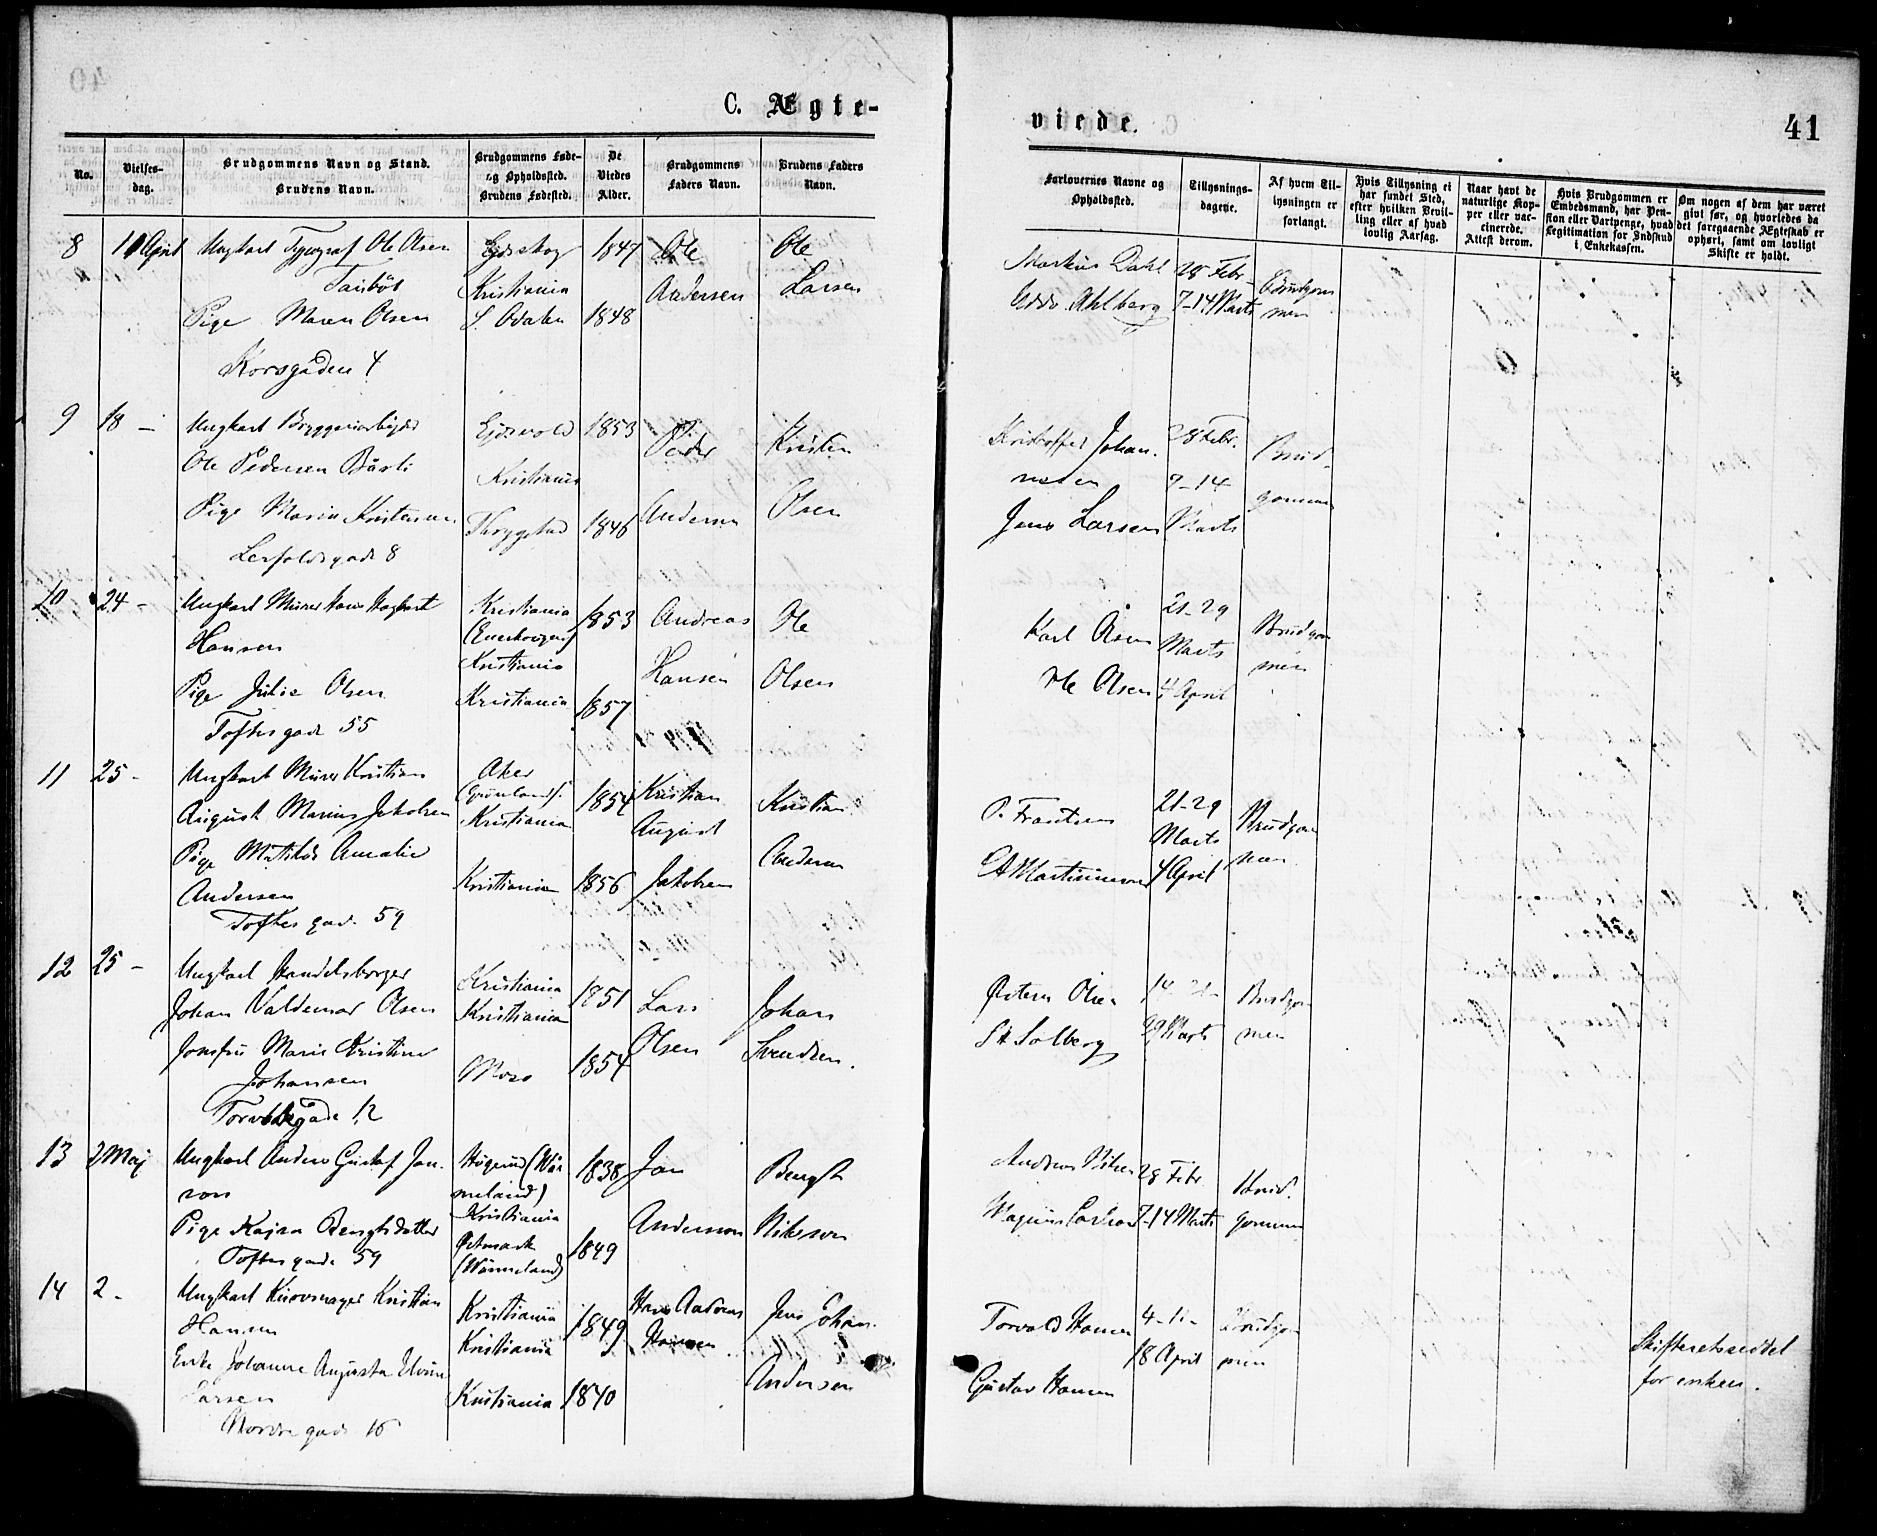 C. Ægte-
viede.
41
No.
Vielses-
dag.
Brudgommens Navn og Stand.
Brudens Navn.
Brudgommens Føde-
og Opholdssted.
Brudens Fødested.
De
Viedes
Alder.
Brudgommens
Faders Navn.
Brudens Faders
Navn.
Forlovernes Navne og
Opholdssted.
Tillysnings-
dagene.
Af hvem Til-
lysningen er
forlangt.
Hvis Tillysning ei
har fundet Sted,
efter hvilken Bevil-
ling eller af hvad
lovlig Aarsag.
Naar havt de
naturlige Kop-
per eller vac-
cinerede.
Attest derom.
Hvis Brudgommen er
Embedsmand, har Pen-
sion eller Vartpenge, hvad
Legitimation for Indskud
i Enkekassen.
Om nogen af dem har været
givt før, og hvorledes da
det foregaaende Ægteskab er
ophørt, samt om lovligt
Skifte er holdt.
8
11 April
Ungkarl Typograf Ole Olsen
Pige Maren Olsen
Korsgaden 4
Eidskog
Kristiania
S. Odalen
1847
1848
Ole
Andersen
Ole
Larsen
Markus Dahl
Ahlberg
28 Febr
7-14 Marts
Brudgom
men
9
18 -
Ungkarl Bryggeriarbejder
Ole Pedersen
Pige Maria Kristensen
8
Ejdsvold
Kristiania
Trygstad
1853
1846
Peder
Andersen
Kristen
Olsen
Kristoffer Johan-
nesen
Jens Larsen
28 Febr.
7-14
Marts
Brud-
gommen
10
24 -
Ungkarl Murer Hans Hagbart
Hansen
Pige Julie Olsen
Toftesgade 55
Kristiania
Kristiania
Kristiania
1853
1857
Andreas
Hansen
Ole
Olsen
Karl Olsen
Ole Olsen
21-29
Marts
4 April
Brudgom
men
11
25 -
Ungkarl Murer Kristian
August Marius Jakobsen
Pige Matilde Amalie
Andersen
Toftes gade 59
Aker
(Grønland)
Kristiania
Kristiania
1854
1856
Kristian
August
Jakobsen
Kristian
Andersen
P. Frantsen
21-29
Marts
4 April
Brudgom
men
12
25 -
Ungkarl Handelsborger
Johan Valdemar Olsen
Jomfru Marie Kristine
Johansen
12
Kristiania
Kristiania
Moss
1851
1854
Lars
Olsen
Johan
Svendsen.
Petter Olsen
Solberg
14-21-
29 Marts
Brudgom
men
13
2 Maj
Ungkarl Anders Gustaf Jan-
son
Pige Kajsa Bengtsdatter
Toftes gade 59
Högerud (Wär
meland)
Kristiania
Östmark
(Wärmeland)
1838
1849
Jan
Anderson
Bengt
Nilsson
Andreas Nilsen
28 Febr
7-14 Marts
Brud-
gommen
14
2 -
Ungkarl Kurvmager Kristian
Hansen
Enke Johanne Augusta Elvine
Larsen
Nordre gade 16
Kristiania
Kristiania
Kristiania
1849
1840
Hans Andreas
Hansen
Jens Johan
Andersen
Torvald Hansen
Gustav Hansen
4-11-
18 April
Brudgom
men
Skifteretsseddel
for enken.